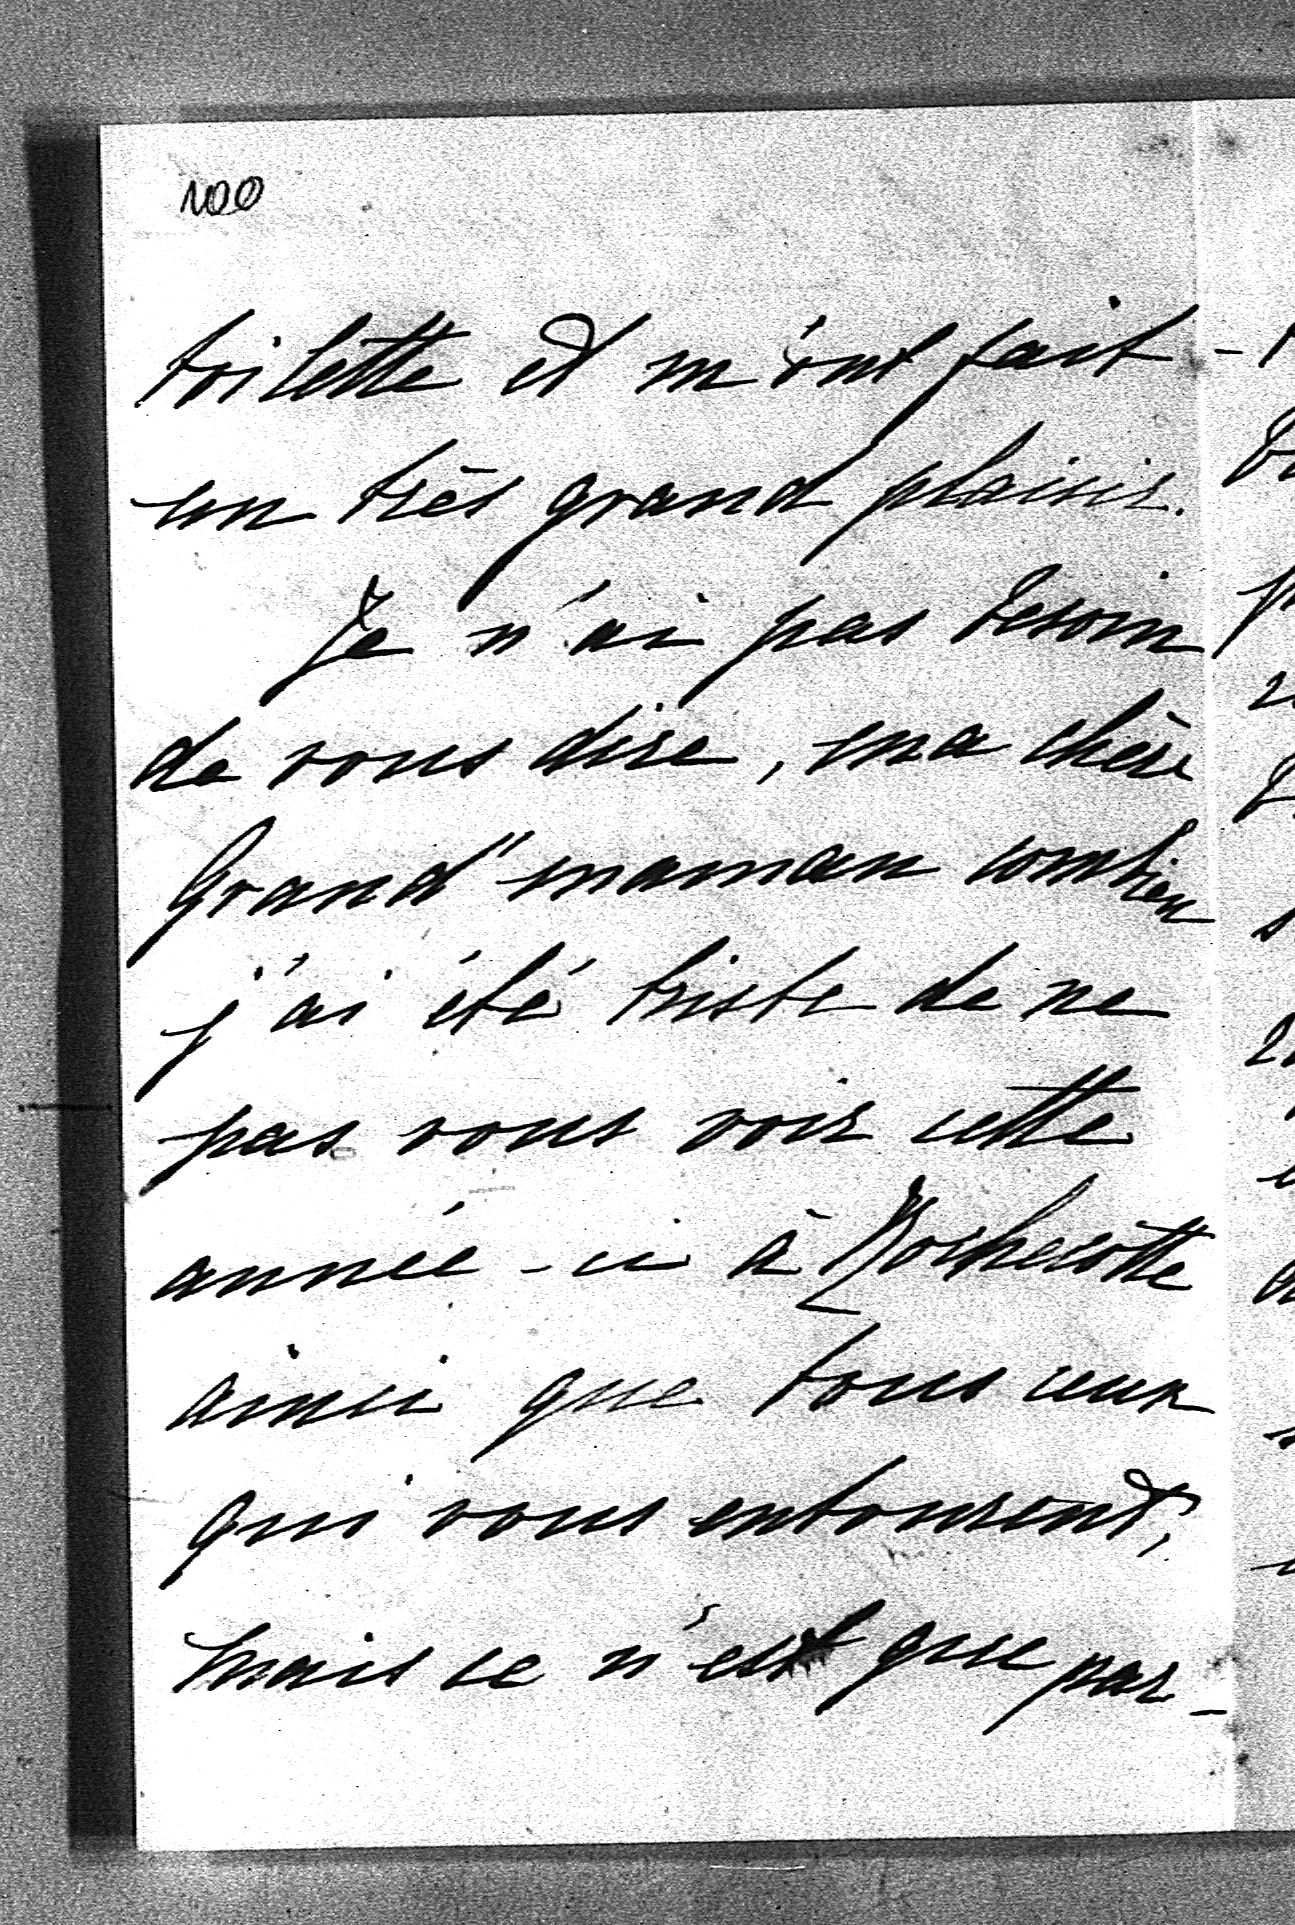 100
toilette et m'ont fait
un très grand plaisir.
Je n'ai pas besoin
de vous dire, ma chère
Grand'maman combien
j'ai été triste de ne
pas vous voir cette
année-ci à Rochecotte
ainsi que tous ceux
qui vous entourent;
mais ce n'est que par-